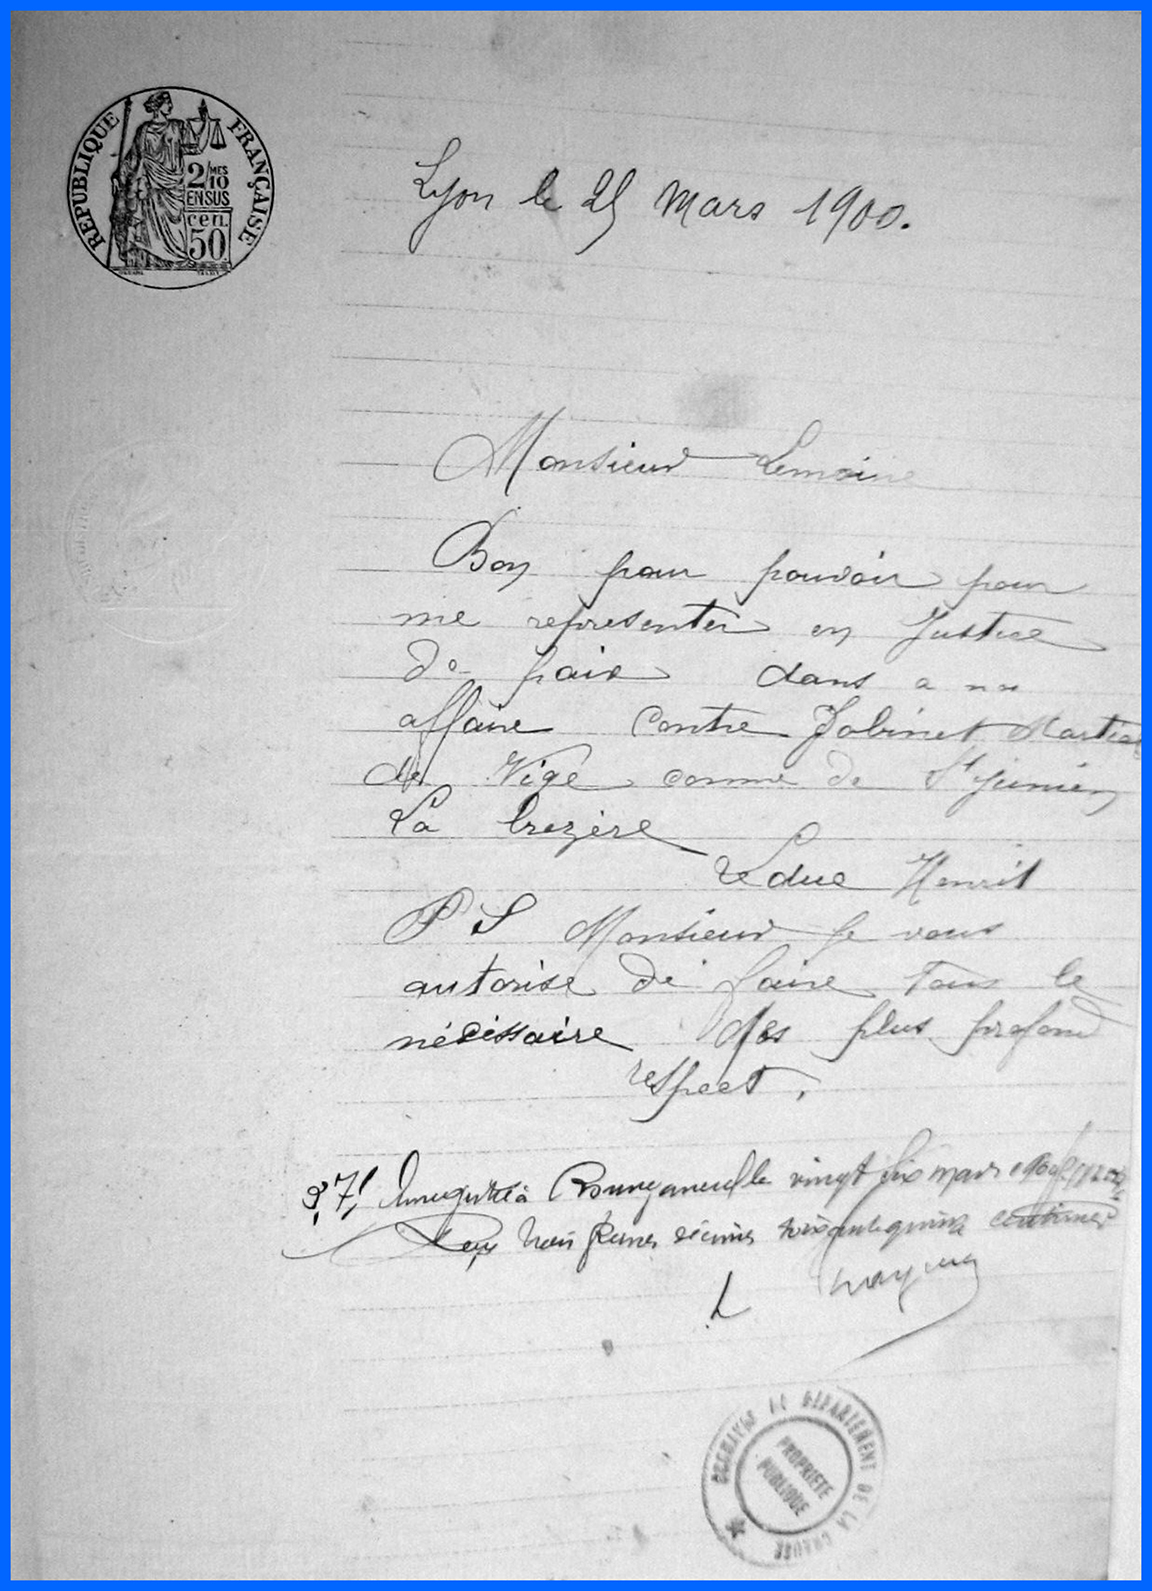 RÉPUBLIQUE FRANÇAISE
2/10 MES
EN SUS
cen.
50
Lyon le 25 Mars 1900.
Monsieur Lemoine
Bon pour pouvoir pour
me representer en Justice
de paix dans
affaire Contre Jabinet Martial
de Vige comme de St Junien
La brezère
Leduc Henrit
P S Monsieur Je vous
autorise de faire tous le
nécissaire des plus profond
respect.
Enregistré à Bourganeuf le vingt six mars
Reçu trois francs soixante quinze centimes
ARCHIVES DU DÉPARTEMENT DE LA CREUSE
PROPRIÉTÉ
PUBLIQUE